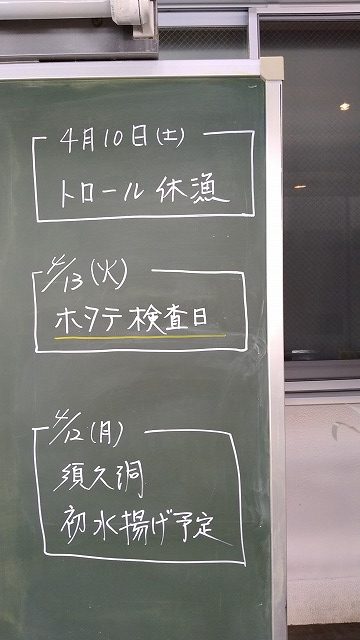 4月10日(土)
トロール休漁
4/13(火)
ホタテ検査日
4/12(月)
須久洞
初水揚げ予定